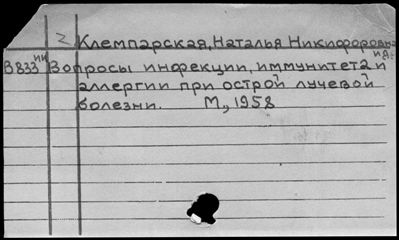 2 Клемпарская, Наталья Никифоровна
и др.
В833ии Вопросы инфекции, иммунитета и
аллергии при острой лучевой
болезни. М., 1958